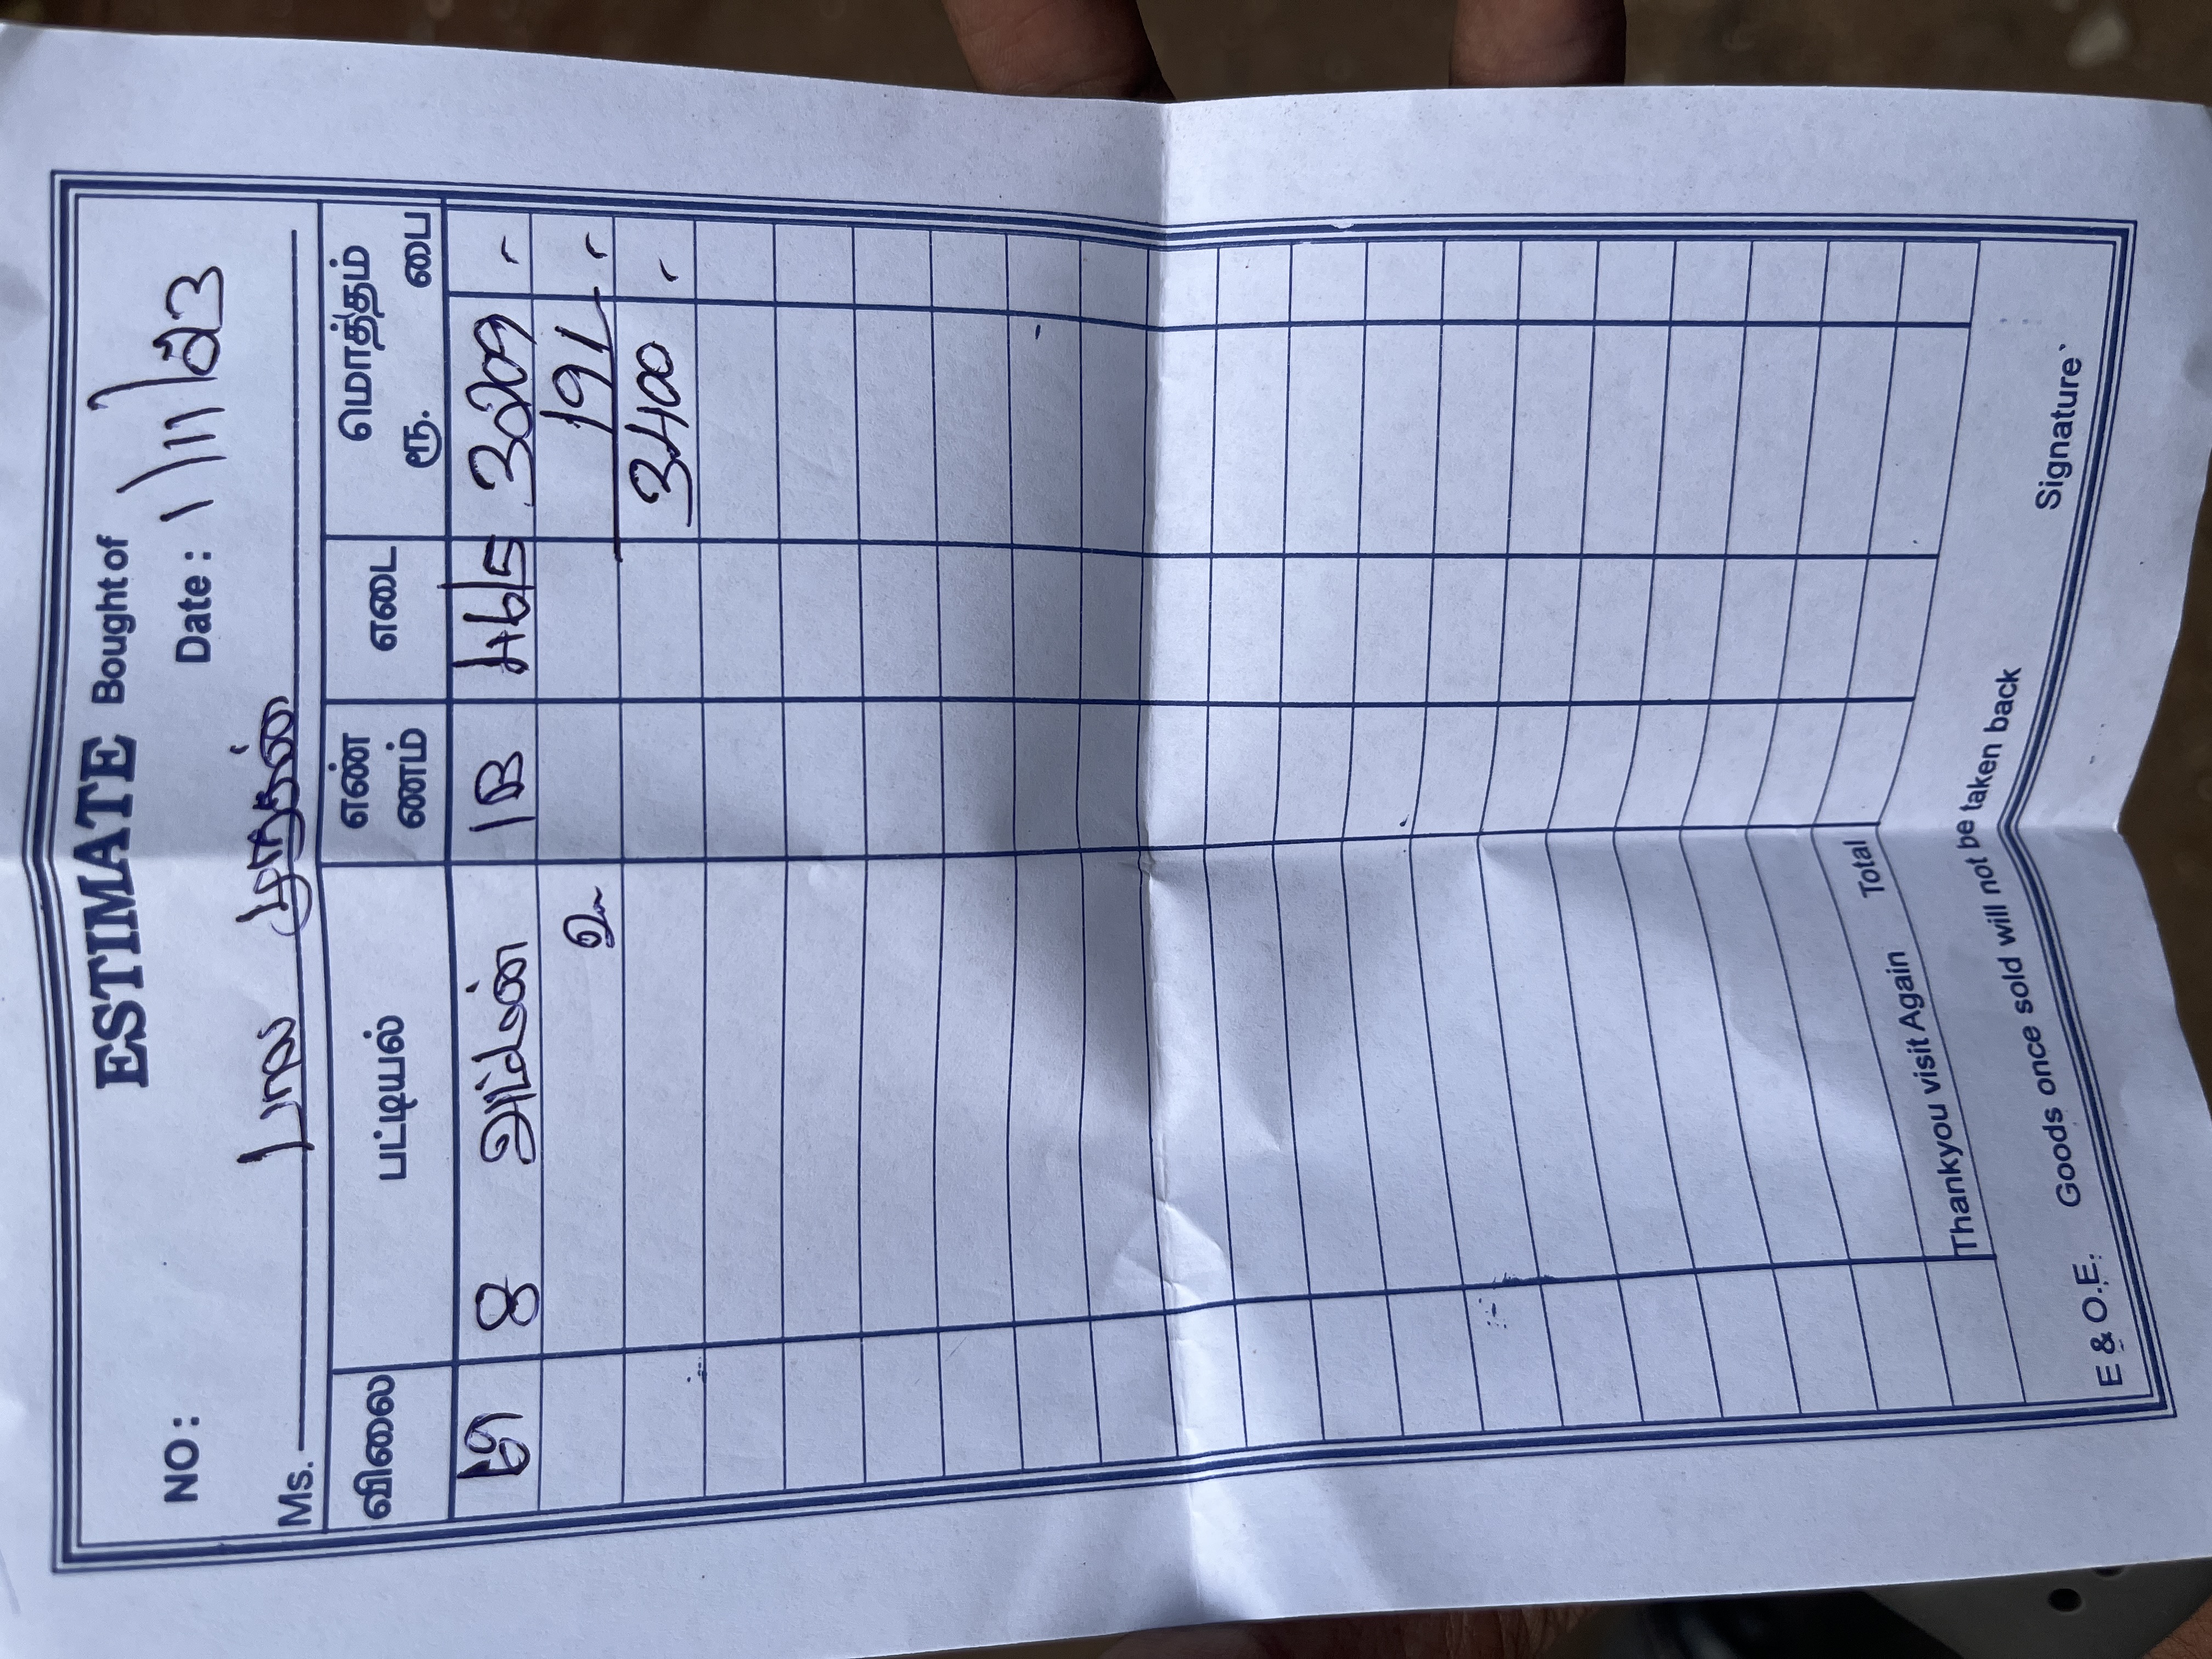 ESTIMATE Bought of
NO :
Date : 1/11/23
Ms. பால முருகன்
விலை பட்டியல் எண்ணம் எடை மொத்தம்
ரூ. பை
69 8 அம்மன் 1B 46/5 3209 -
191 -
3400 -
Total
Thankyou visit Again
Goods once sold will not be taken back
E & O.E.
Signature